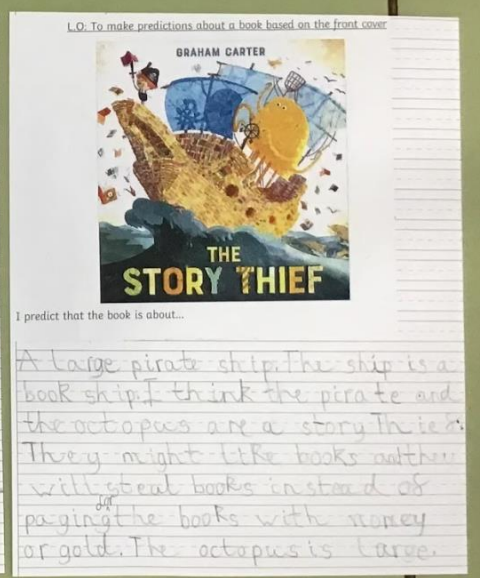 L.O: To make predictions about a book based on the front cover
GRAHAM CARTER
THE
STORY THIEF
I predict that the book is about...
A large pirate ship. The ship is a
book ship. I think the pirate and
the octopus are a story Thief.
They might like books
will steal books instead of
for
paging the books with money
or gold. The octopus is large.